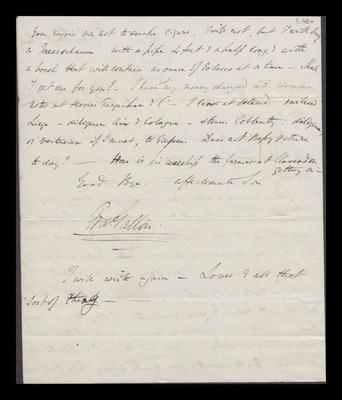 You enjoin me not to smoke cigars. I will not, but I will buy
a Meerschaum with a pipe 4 feet & a half long, & with
a bowl that will contain an ounce of Tobacco at a time – Shall
I get one for you? – I have my money changed into circular
notes at Herries Farquhar & Co – I land at Ostend
Liege – diligence Aix & Cologne – steam Coblentz, diligence
or voiturier if I must, to Giessen. Does not Bessy return
to day? – How is his worship the farmer at Claverdon
getting on –
Good Bye. affectionate Son
Fra Galton.
I will write again – Loves & all that
sort of thing –